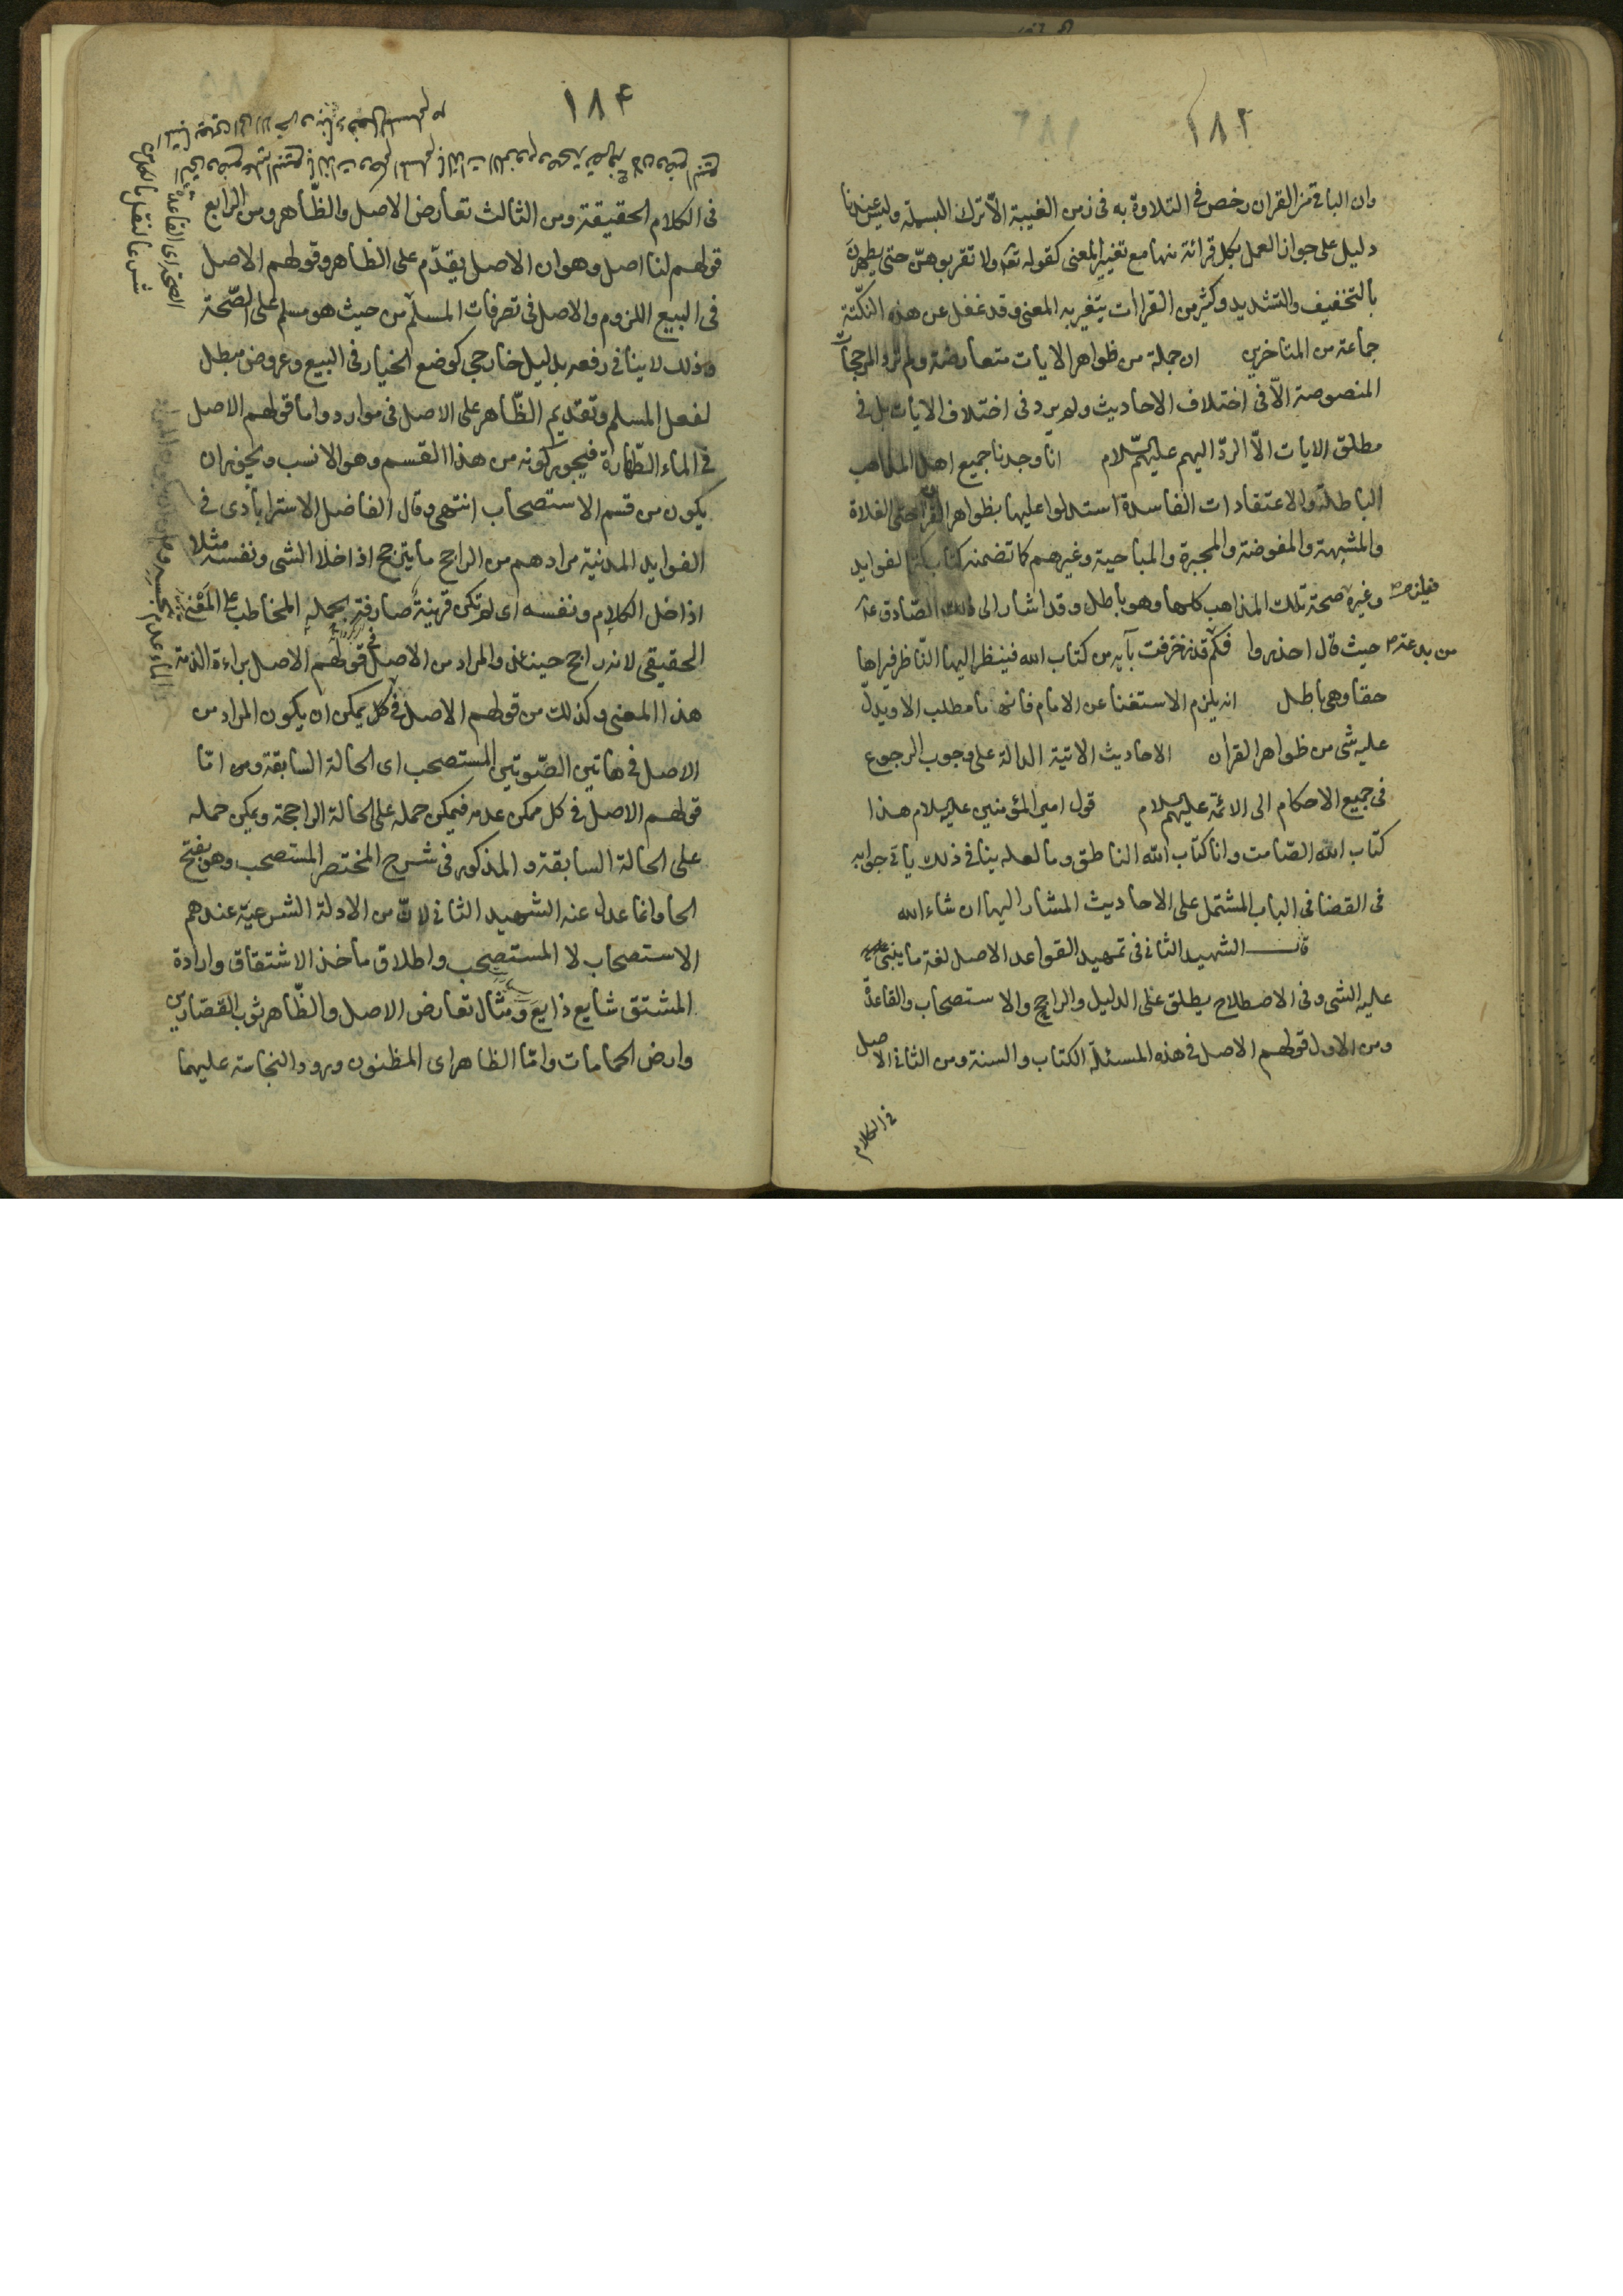 ١٨٢
وان الباقى من القران رخص فى التلاوة به فى زمن الغيبة الا ترك البسملة وليس عندنا
دليل على جواز العمل بكل قرائة منها مع تغيير المعنى كقوله تعالى ولا تقربوهن حتى يطهرن
بالتخفيف والتشديد وكثير من القراات يتغير به المعنى وقد غفل عن هذه النكتة
جماعة من المتاخرين ان جملة من ظواهر الايات متعارضة ولم ترد المرجحات
المنصوصة الّا فى اختلاف الاحاديث ولم يرد فى اختلاف الايات بل فى
مطلق الايات الّا الردّ اليهم عليهم السّلام انّا وجدنا جميع اهل المذاهب
الباطلة والاعتقادات الفاسدة استدلوا عليها بظواهر القران حتى الغلاة
والمشبهة والمفوضة والمجبرة والمباحية وغيرهم كما تضمنه كتاب كنز الفوايد
وغيره فيلزم صحة تلك المذاهب كلها وهو باطل وقد اشار الى ذلك الصّادق عليه
حيث قال احذروا من بدعته فكم قد زخرفت بآيه من كتاب الله فينظر اليها النّاظر فيراها
حقا وهى باطل انه يلزم الاستغنا عن الامام فانه ما مطلب الا ويدلّ
عليه شى من ظواهر القران الاحاديث الاتية الدالة على وجوب الرجوع
فى جميع الاحكام الى الائمة عليهم السلام قول امير المؤمنين عليه السلام هذا
كتاب الله الصّامت وانا كتاب الله الناطق وما لعله ينافى ذلك ياتى جوابه
فى القضا فى الباب المشتمل على الاحاديث المشار اليها ان شاء الله
قال الشهيد الثانى فى تمهيد القواعد الاصل لغة ما يبنى
عليه الشى وفى الاصطلاح يطلق على الدليل والراجح والاستصحاب والقاعدة
ومن الاول قولهم الاصل فى هذه المسئلة الكتاب والسنة ومن الثانى الاصل
فى الكلام
١٨٤
فى الكلام الحقيقة ومن الثالث تعارض الاصل والظّاهر ومن الرابع
قولهم لنا اصل وهو ان الاصل يقدّم على الظاهر وقولهم الاصل
فى البيع اللزوم والاصل فى تصرفات المسلم من حيث هو مسلم على الصّحة
وذلك لا ينافى رفعه بدليل خارجى كوضع الخيار فى البيع وعروض مبطل
لفعل المسلم وتقديم الظّاهر على الاصل فى موارد واما قولهم الاصل
فى الماء الطّهارة فيجوز كونه من هذا القسم وهو الانسب ويجوز ان
يكون من قسم الاستصحاب انتهى وقال الفاضل الاسترابادى فى
الفوايد المدنية مرادهم من الراجح ما يترجح اذا خلا الشى ونفسه مثلا
اذا خلى الكلام ونفسه اى لم تكن قرينة صارفة يحمله المخاطب على المعنى
الحقيقى لانه راجح حينئذ والمراد من الاصل فى قولهم الاصل براءة الذمة
هذا المعنى وكذلك من قولهم الاصل فى كل يمكن ان يكون المراد من
الاصل فى هاتين الصّورتين المستصحب اى الحالة السابقة ومن اما
قولهم الاصل فى كل ممكن عدمه فيمكن حمله على الحالة الراجحة ويمكن حمله
على الحالة السابقة والمذكور فى شرح المختصر المستصحب وهو بفتح
الحا وانما عدل عنه الشهيد الثانى لانّ من الادلة الشرعيّة عندهم
الاستصحاب لا المستصحب واطلاق ماخذ الاشتقاق وارادة
المشتق شايع ذايع ومثال تعارض الاصل والظّاهر ثوب القصّارين
وارض الحمامات وامّا الظاهر اى المظنون ورود النجاسة عليهما